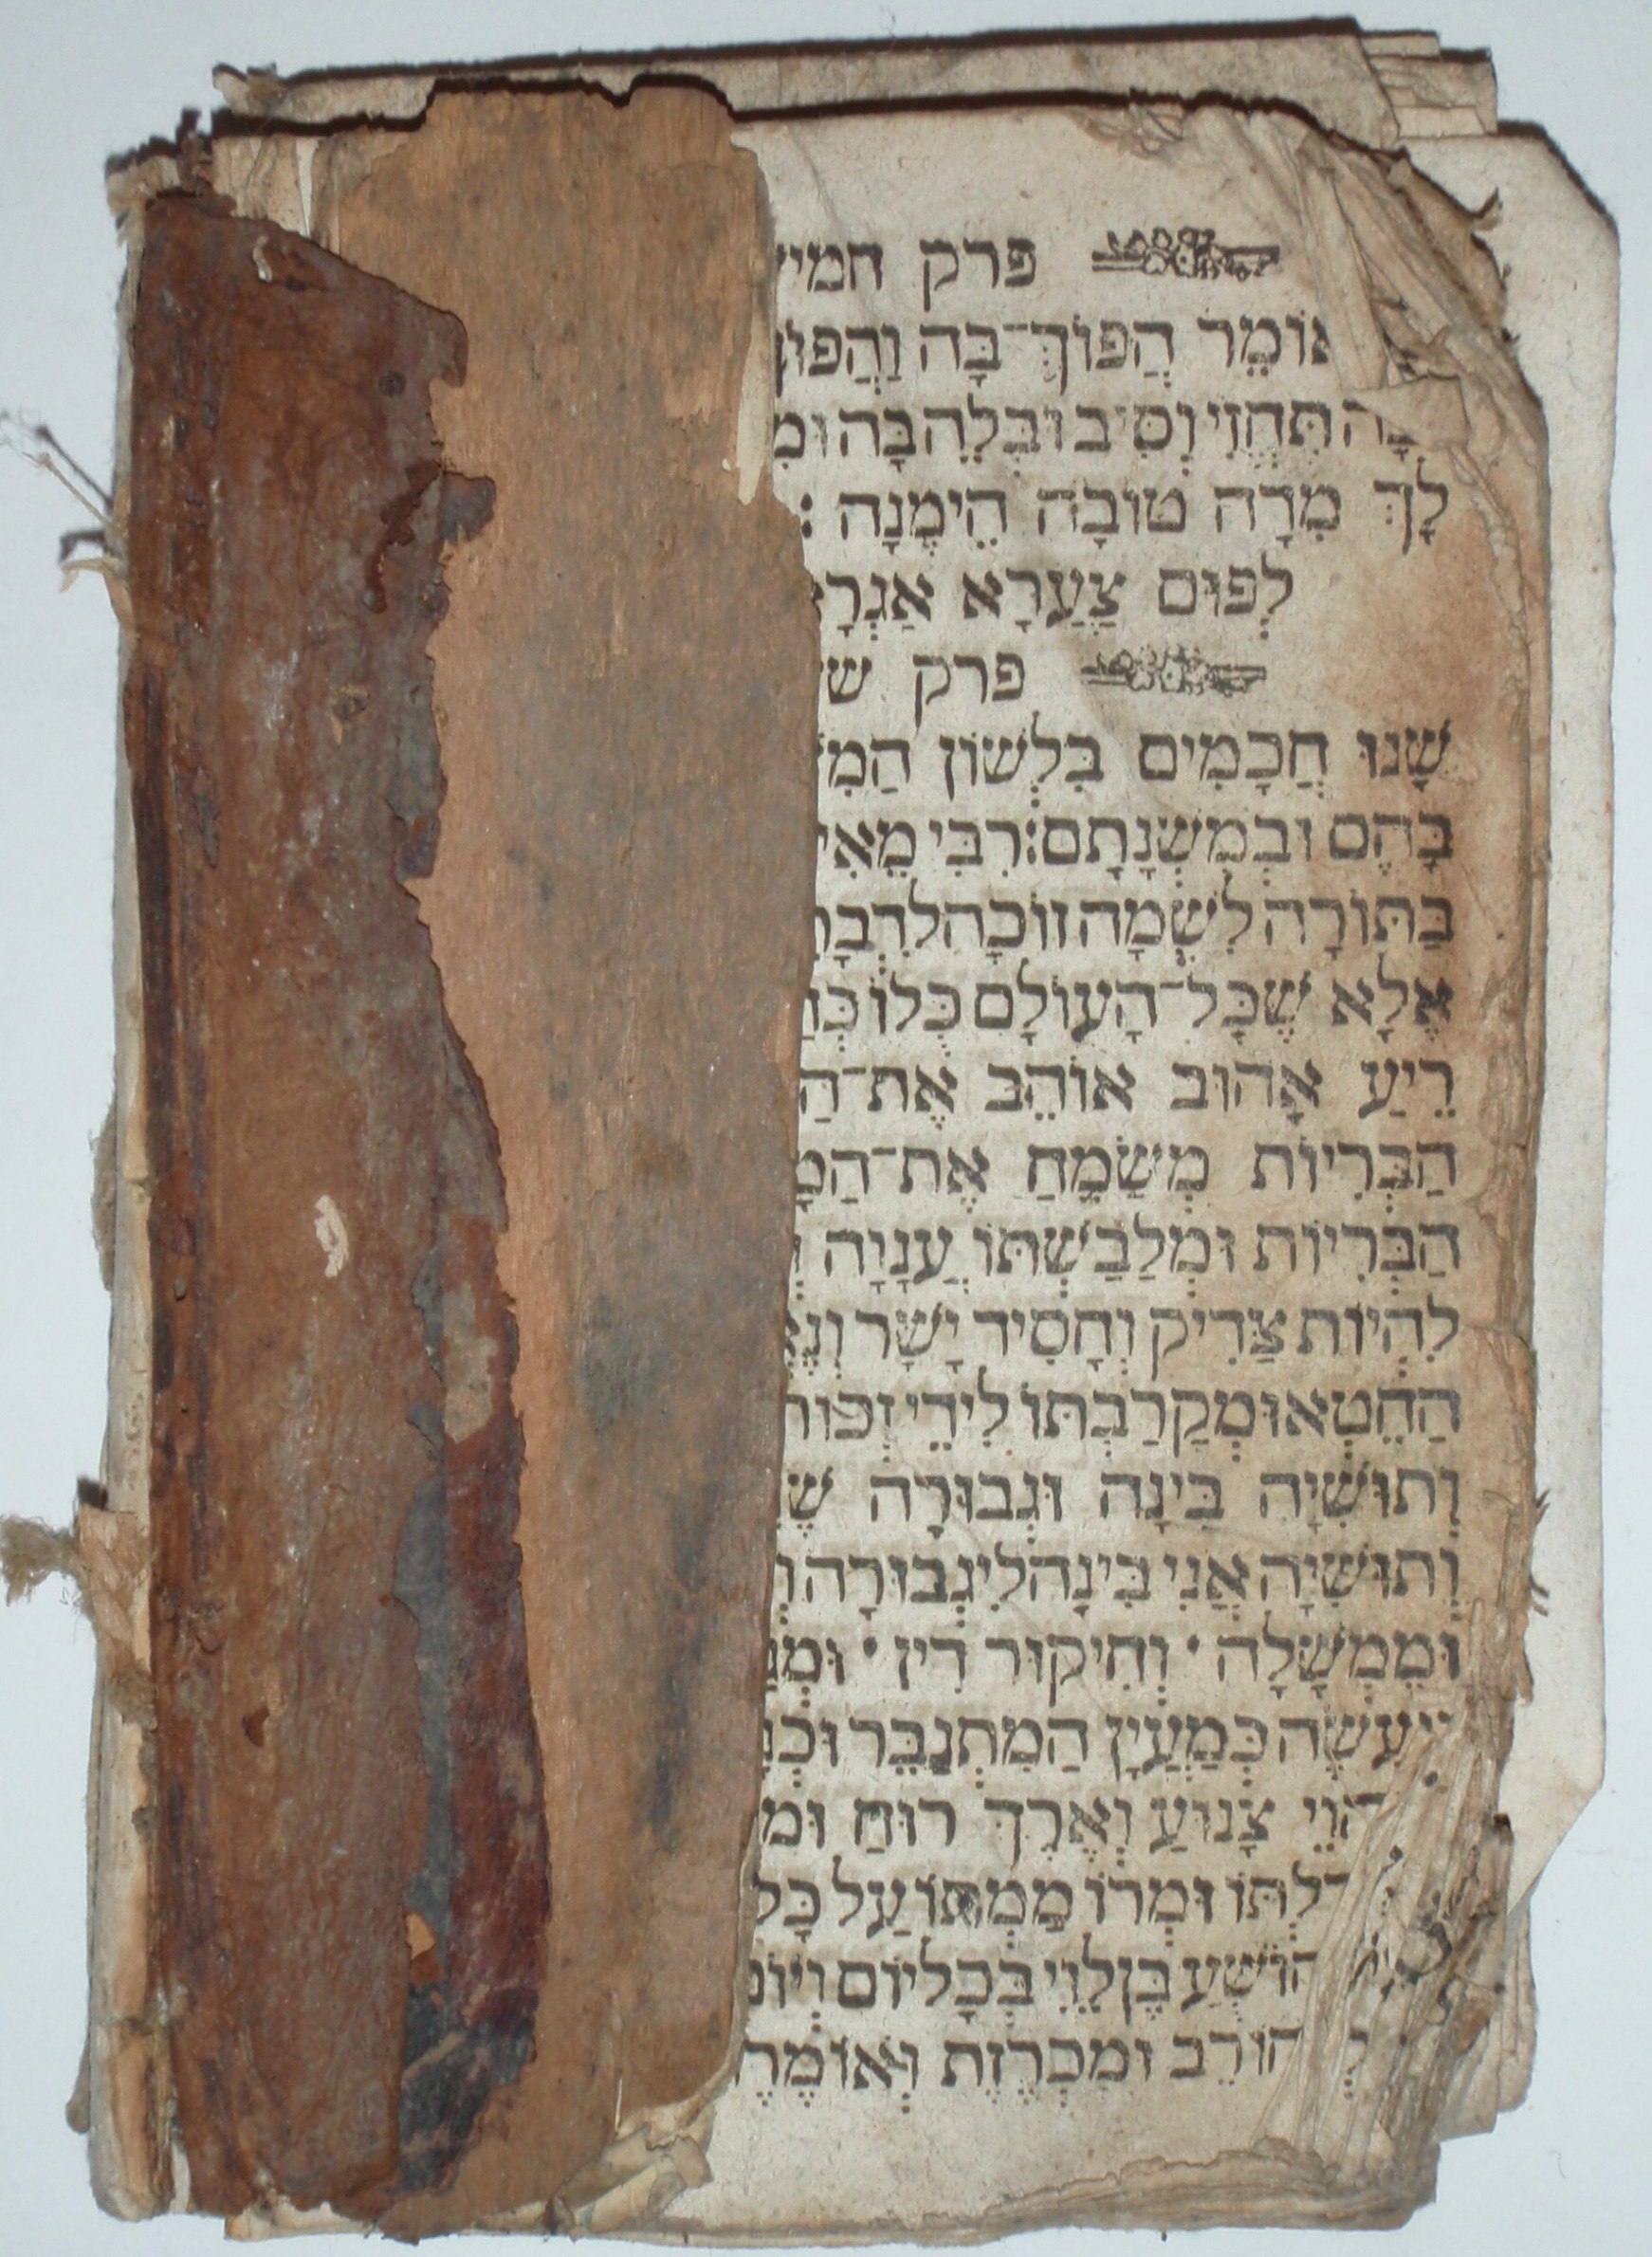 פרק
אוֹמֵר הֲפוֹךְ־בָּה וַהֲפוֹךְ
תֶּחֱזֵי וְסִיב וּבְלֵה בָּהּ
לָךְ מִדָּה טוֹבָה הֵימֶנָּה :
לְפוּם צַעֲרָא אַגְרָא
פרק
שָׁנוּ חֲכָמִים בִּלְשׁוֹן
בָּהֶם וּבְמִשְׁנָתָם׃ רִבִּי
בַּתּוֹרָה לִשְׁמָהּ זוֹכֶה
אֶלָּא שֶׁכָּל־הָעוֹלָם כֻּלּוֹ
רֵיעַ אָהוּב אוֹהֵב אֶת־
הַבְּרִיוֹת מְשַׂמֵּחַ אֶת־
הַבְּרִיוֹת וּמְלַבַּשְׁתּוֹ עֲנָוָה
לִהְיוֹת צַדִּיק וְחָסִיד יָשָׁר
הַחֵטְא וּמְקָרַבְתּוֹ לִידֵי זְכוּת
וְתוּשִׁיָּה בִּינָה וּגְבוּרָה
וְתוּשִׁיָּה אֲנִי בִּינָה לִי גְבוּרָה
וּמֶמְשָׁלָה · וְחִיקוּר דִּין ·
כְּמַעְיָן הַמִּתְגַּבֵּר
צָנוּעַ וְאֶרֶךְ רוּחַ
וּמְרוֹמַמְתּוֹ עַל כָּל
בֶּן לֵוִי בְּכָל יוֹם
וּמַכְרֶזֶת וְאוֹמֶרֶת